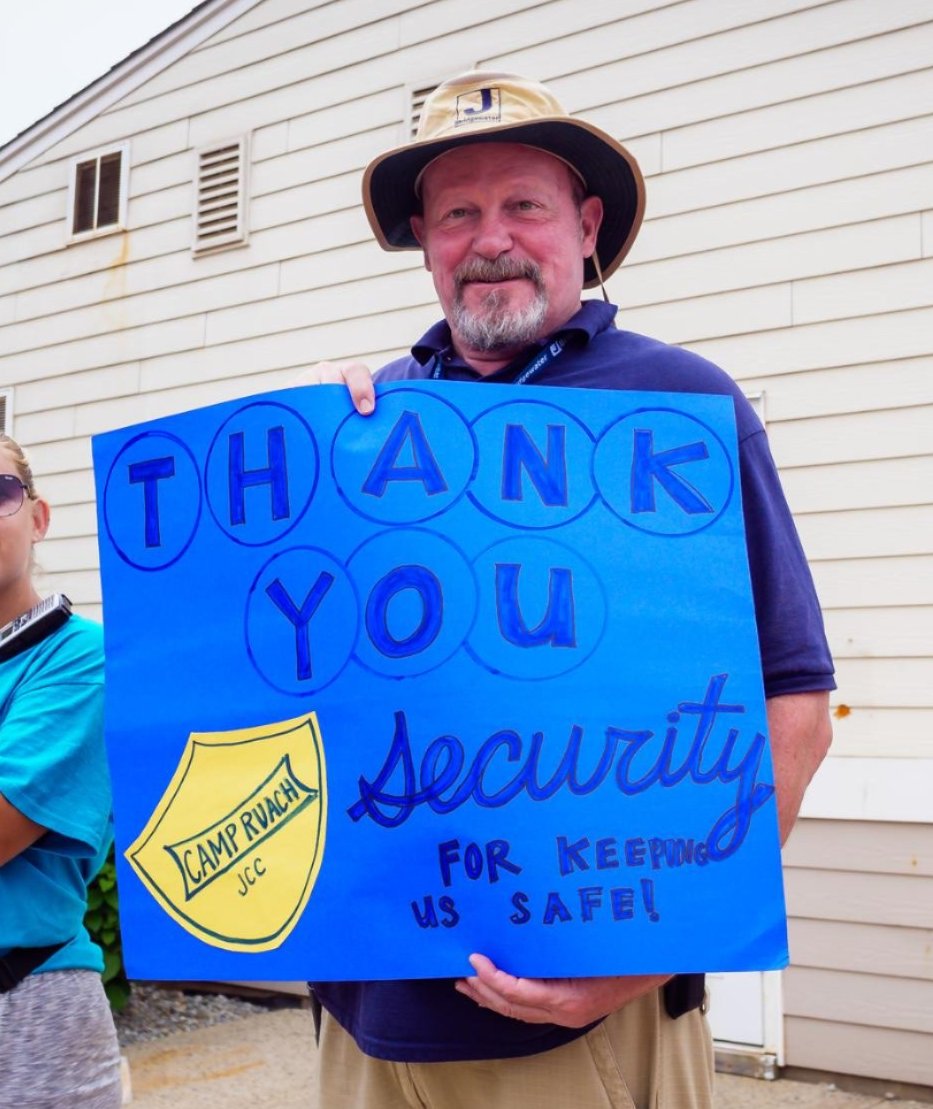 J
THANK
YOU
Security
FOR KEEPING
US SAFE!
CAMP RUACH
JCC